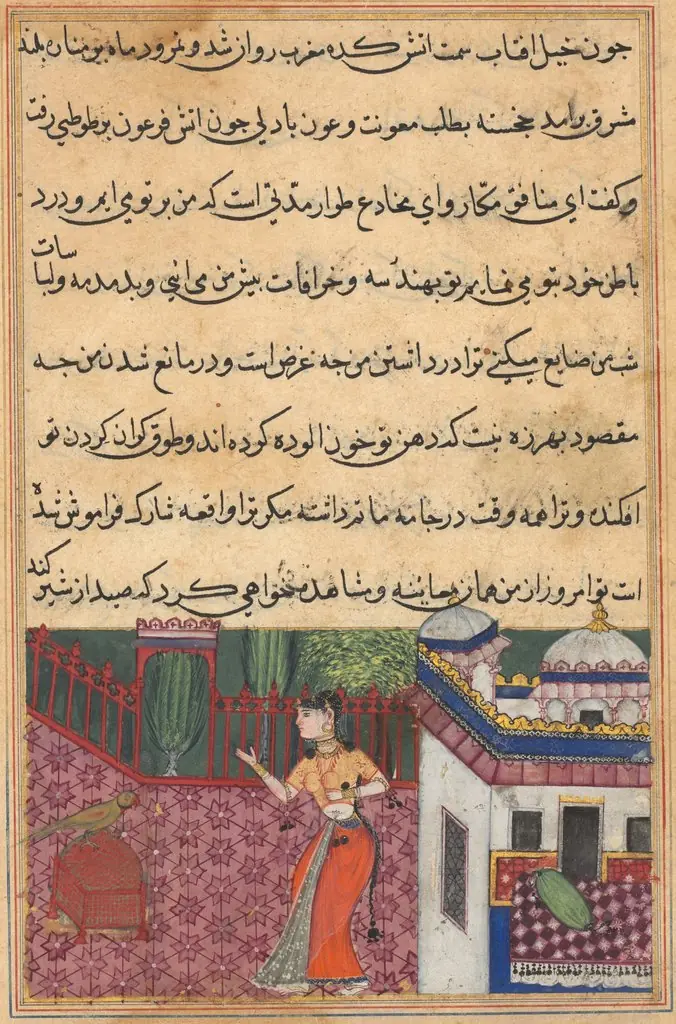 جون خیل افتاب سمت اتش کده مغرب روان شد و نمرود ماه بر مناره بلند
مشرق برامد خجسته بطلب معونت و عون با دلی جون اتش فرعون بر طوطی رفت
و کفت ای منافق مکار و ای مخادع طوار مدتی است که من بر تو می ایم و درد
باطن خود بتو می نمایم تو بهندسه و خرافات بیش من می ائی و بدمدمه ولباسات
شب من ضایع میکنی ترا در داشتن من جه غرض است و در مانع شدن من جه
مقصود بهرزه نیست که دهن تو خون الوده کرده اند و طوق کران کردن تو
افکنده و ترا همه وقت در جامه ماتم داشته مکر ترا واقعه شارک فراموش شده
است تو امروز از من همان معاینه و مشاهده خواهی کرد که صید از شیر کند